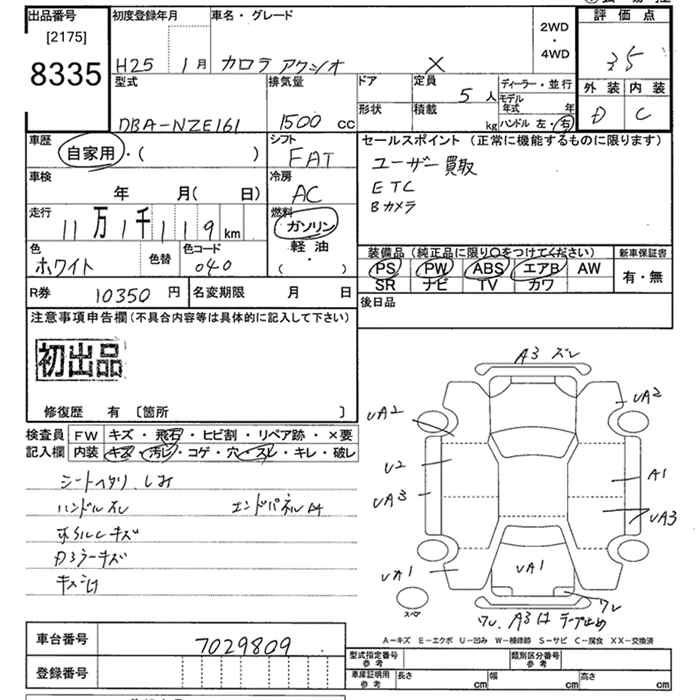 出品番号
[2175]
8335
初度登録年月
H25 1月
車名・グレード
カローラ アクシオ X
2WD
・
4WD
評価点
3.5
外装 内装
D C
型式
DBA-NZE161
排気量
1500 cc
ドア
定員
5人
形状
積載
kg
ディーラー・並行
モデル年式 年
ハンドル 左・右
車歴
自家用・( )
シフト
FAT
車検
年 月( 日)
冷房
AC
走行
11万1千119km
燃料
ガソリン
軽油
( ・ )
色
ホワイト
色替
色コード
040
セールスポイント(正常に機能するものに限ります)
ユーザー買取
ETC
Bカメラ
装備品(純正品に限り○をつけてください)
PS PW ABS エアB AW
SR ナビ TV カワ
新車保証書
有・無
R券 10350円
名変期限 月 日
後日品
注意事項申告欄(不具合内容等は具体的に記入して下さい)
初出品
修復歴 有 〔箇所 〕
検査員
記入欄
FW キズ・飛石・ヒビ割・リペア跡・×要
内装 キズ・汚レ・コゲ・穴・スレ・キレ・破レ
シートヘタリ、シミ
ハンドルスレ エンドパネルA4
ホイルCキズ
ドアミラーキズ
キズ凹
A3 ズレ
UA2
UA2
U2
UA3
A1
UA3
UA1
UA1
ワレ
ワレ、A3はテープ止め
スペア
A-キズ E-エクボ U-凹み W-補修跡 S-サビ C-腐食 XX-交換済
車台番号
7029809
登録番号
型式指定番号
参考
類別区分番号
参考
車庫証明用
参考
長さ cm
幅 cm
高さ cm